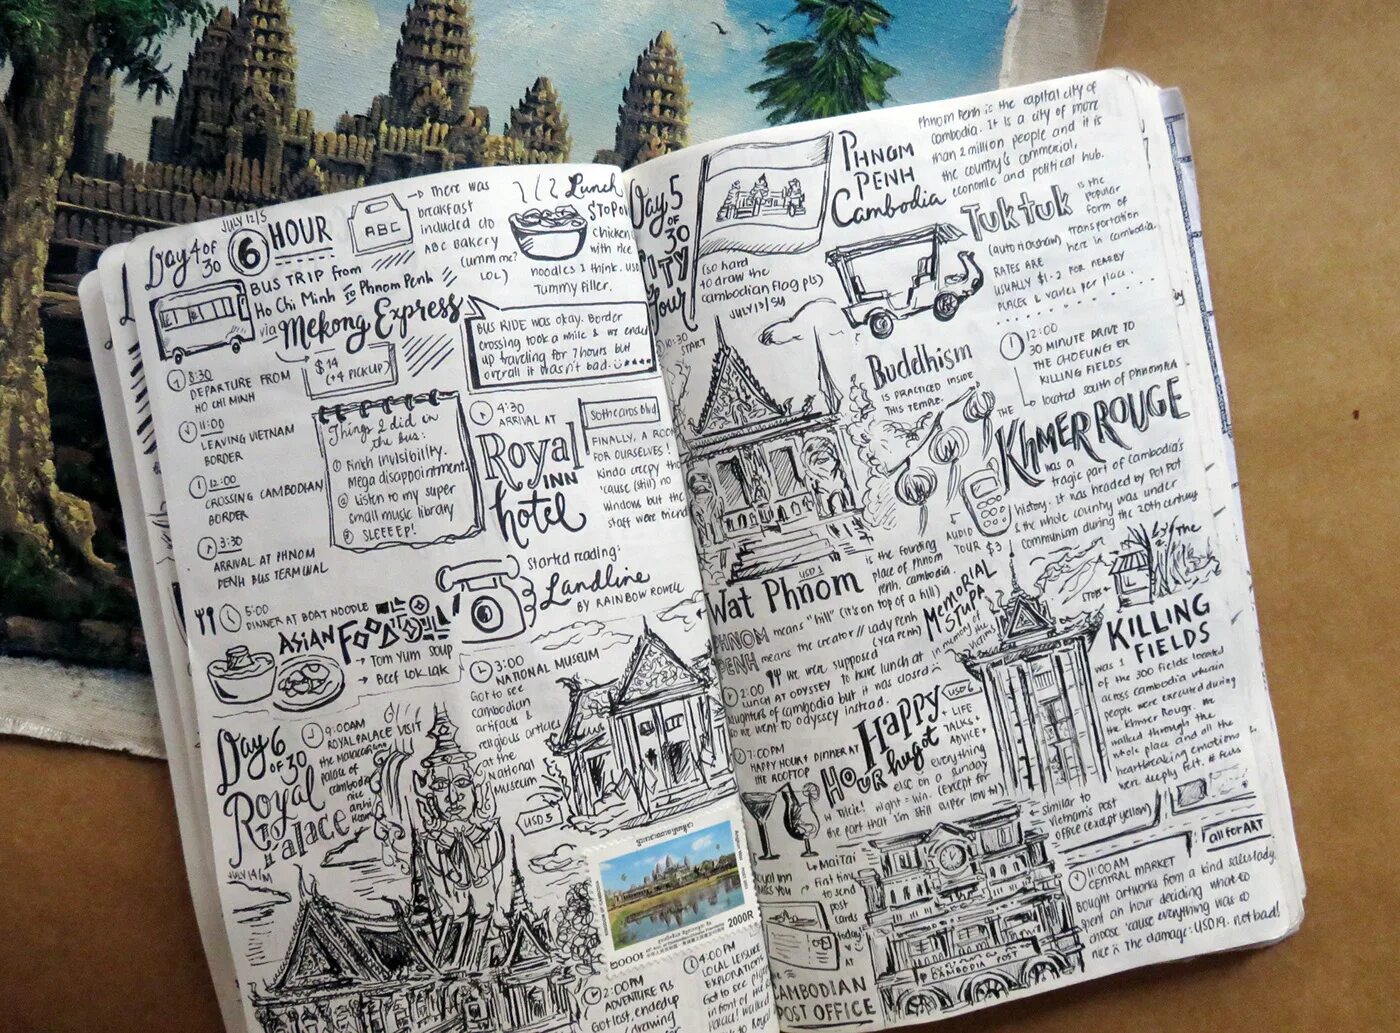 JULY 12/S
Day 4 of 30
6 HOUR
BUS TRIP from
Ho Chi Minh to Phnom Penh
via Mekong Express
$14
(+4 PICKUP)
ABC
there was
breakfast
included c/o
ABC Bakery
(umm me?
LOL)
Lunch
STOPOV
chicken
with rice
noodles I think. USD
Tummy filler.
BUS RIDE was okay. Border
crossing took a while & we ended
up traveling for 7 hours but
overall it wasn't bad.
8:30
DEPARTURE FROM
HO CHI MINH
11:00
LEAVING VIETNAM
BORDER
12:00
CROSSING CAMBODIAN
BORDER
3:30
ARRIVAL AT PHNOM
PENH BUS TERMINAL
Things I did in
the bus:
① Finish Invisibility.
Mega disappointment.
② Listen to my super
small music library
③ SLEEEEP!
4:30
ARRIVAL AT
Royal
INN
hotel
Sothearos Blvd
FINALLY, A ROOM
FOR OURSELVES!
Kinda creepy tho
'cause (still) no
windows but the
staff were friend
Started reading:
Landline
BY RAINBOW ROWELL
5:00
DINNER AT BOAT NOODLE
ASIAN FOOD
→ Tom Yum Soup
→ Beef Lok Lak
3:00
NATIONAL MUSEUM
Got to see
cambodian
artifacts &
religious articles
at the
National
Museum
USD 5
Day 6 OF 30
Royal
Palace
JULY 14/M
9:00AM
ROYAL PALACE VISIT
palace of
cambodia
nice
2000R
2:00PM
ADVENTURE
Got lost, ended up
drawing
4:00PM
LOCAL LEISURE
EXPLORATION
Got to see
in front of
Day 5 OF 30
CITY
Tour
10:30
START
(so hard
to draw the
cambodian flag pls)
JULY 13/SU
PHNOM
PENH
Cambodia
Phnom Penh is the capital city of
Cambodia. It is a city of more
than 2 million people and it is
the country's commercial,
economic and political hub.
Tuk tuk
is the
popular
form of
(auto rickshaw) transportation
here in cambodia.
RATES ARE
USUALLY $1-2 FOR NEARBY
PLACES & varies per place.
Buddhism
IS PRACTICED INSIDE
THIS TEMPLE.
12:00
30 MINUTE DRIVE TO
THE CHOEUNG EK
KILLING FIELDS
located south of PHNOM PENH
THE
KHMER ROUGE
was a
tragic part of Cambodia's
history; it was headed by Pol Pot
& the whole country was under
communism during the 20th century
AUDIO
TOUR $3
USD 1
Wat Phnom
the founding
place of Phnom
Penh, Cambodia.
PHNOM means "hill" (it's on top of a hill)
PENH means the creator // Lady Penh
(Yea Penh)
we were supposed
to have lunch at
daughters of cambodia but it was closed
so we went to odyssey instead.
2:00
LUNCH AT ODYSSEY
MEMORIAL
STUPA
in memory of
the
victims
USD 6
The
KILLING
FIELDS
was 1
of the 300 fields located
across cambodia wherein
people were executed during
the Khmer Rouge. We
walked through the
whole place and all the
heartbreaking emotions
were deeply felt. # feels
7:00PM
HAPPY HOUR + DINNER AT
THE ROOFTOP
Happy
HOUR hugot
+ LIFE
TALKS +
ADVICE +
everything
else on a sunday
night = win. (except for
the part that I'm still super low tol)
MaiTai
First time
to send
post
cards
today!
CAMBODIAN
POST OFFICE
CAMBODIA POST
← similar to
Vietnam's post
office (except yellow)
all for ART
11:00AM
CENTRAL MARKET
Bought artworks from a kind saleslady.
Spent an hour deciding what to
choose 'cause everything was so
nice & the damage: USD 19. not bad!